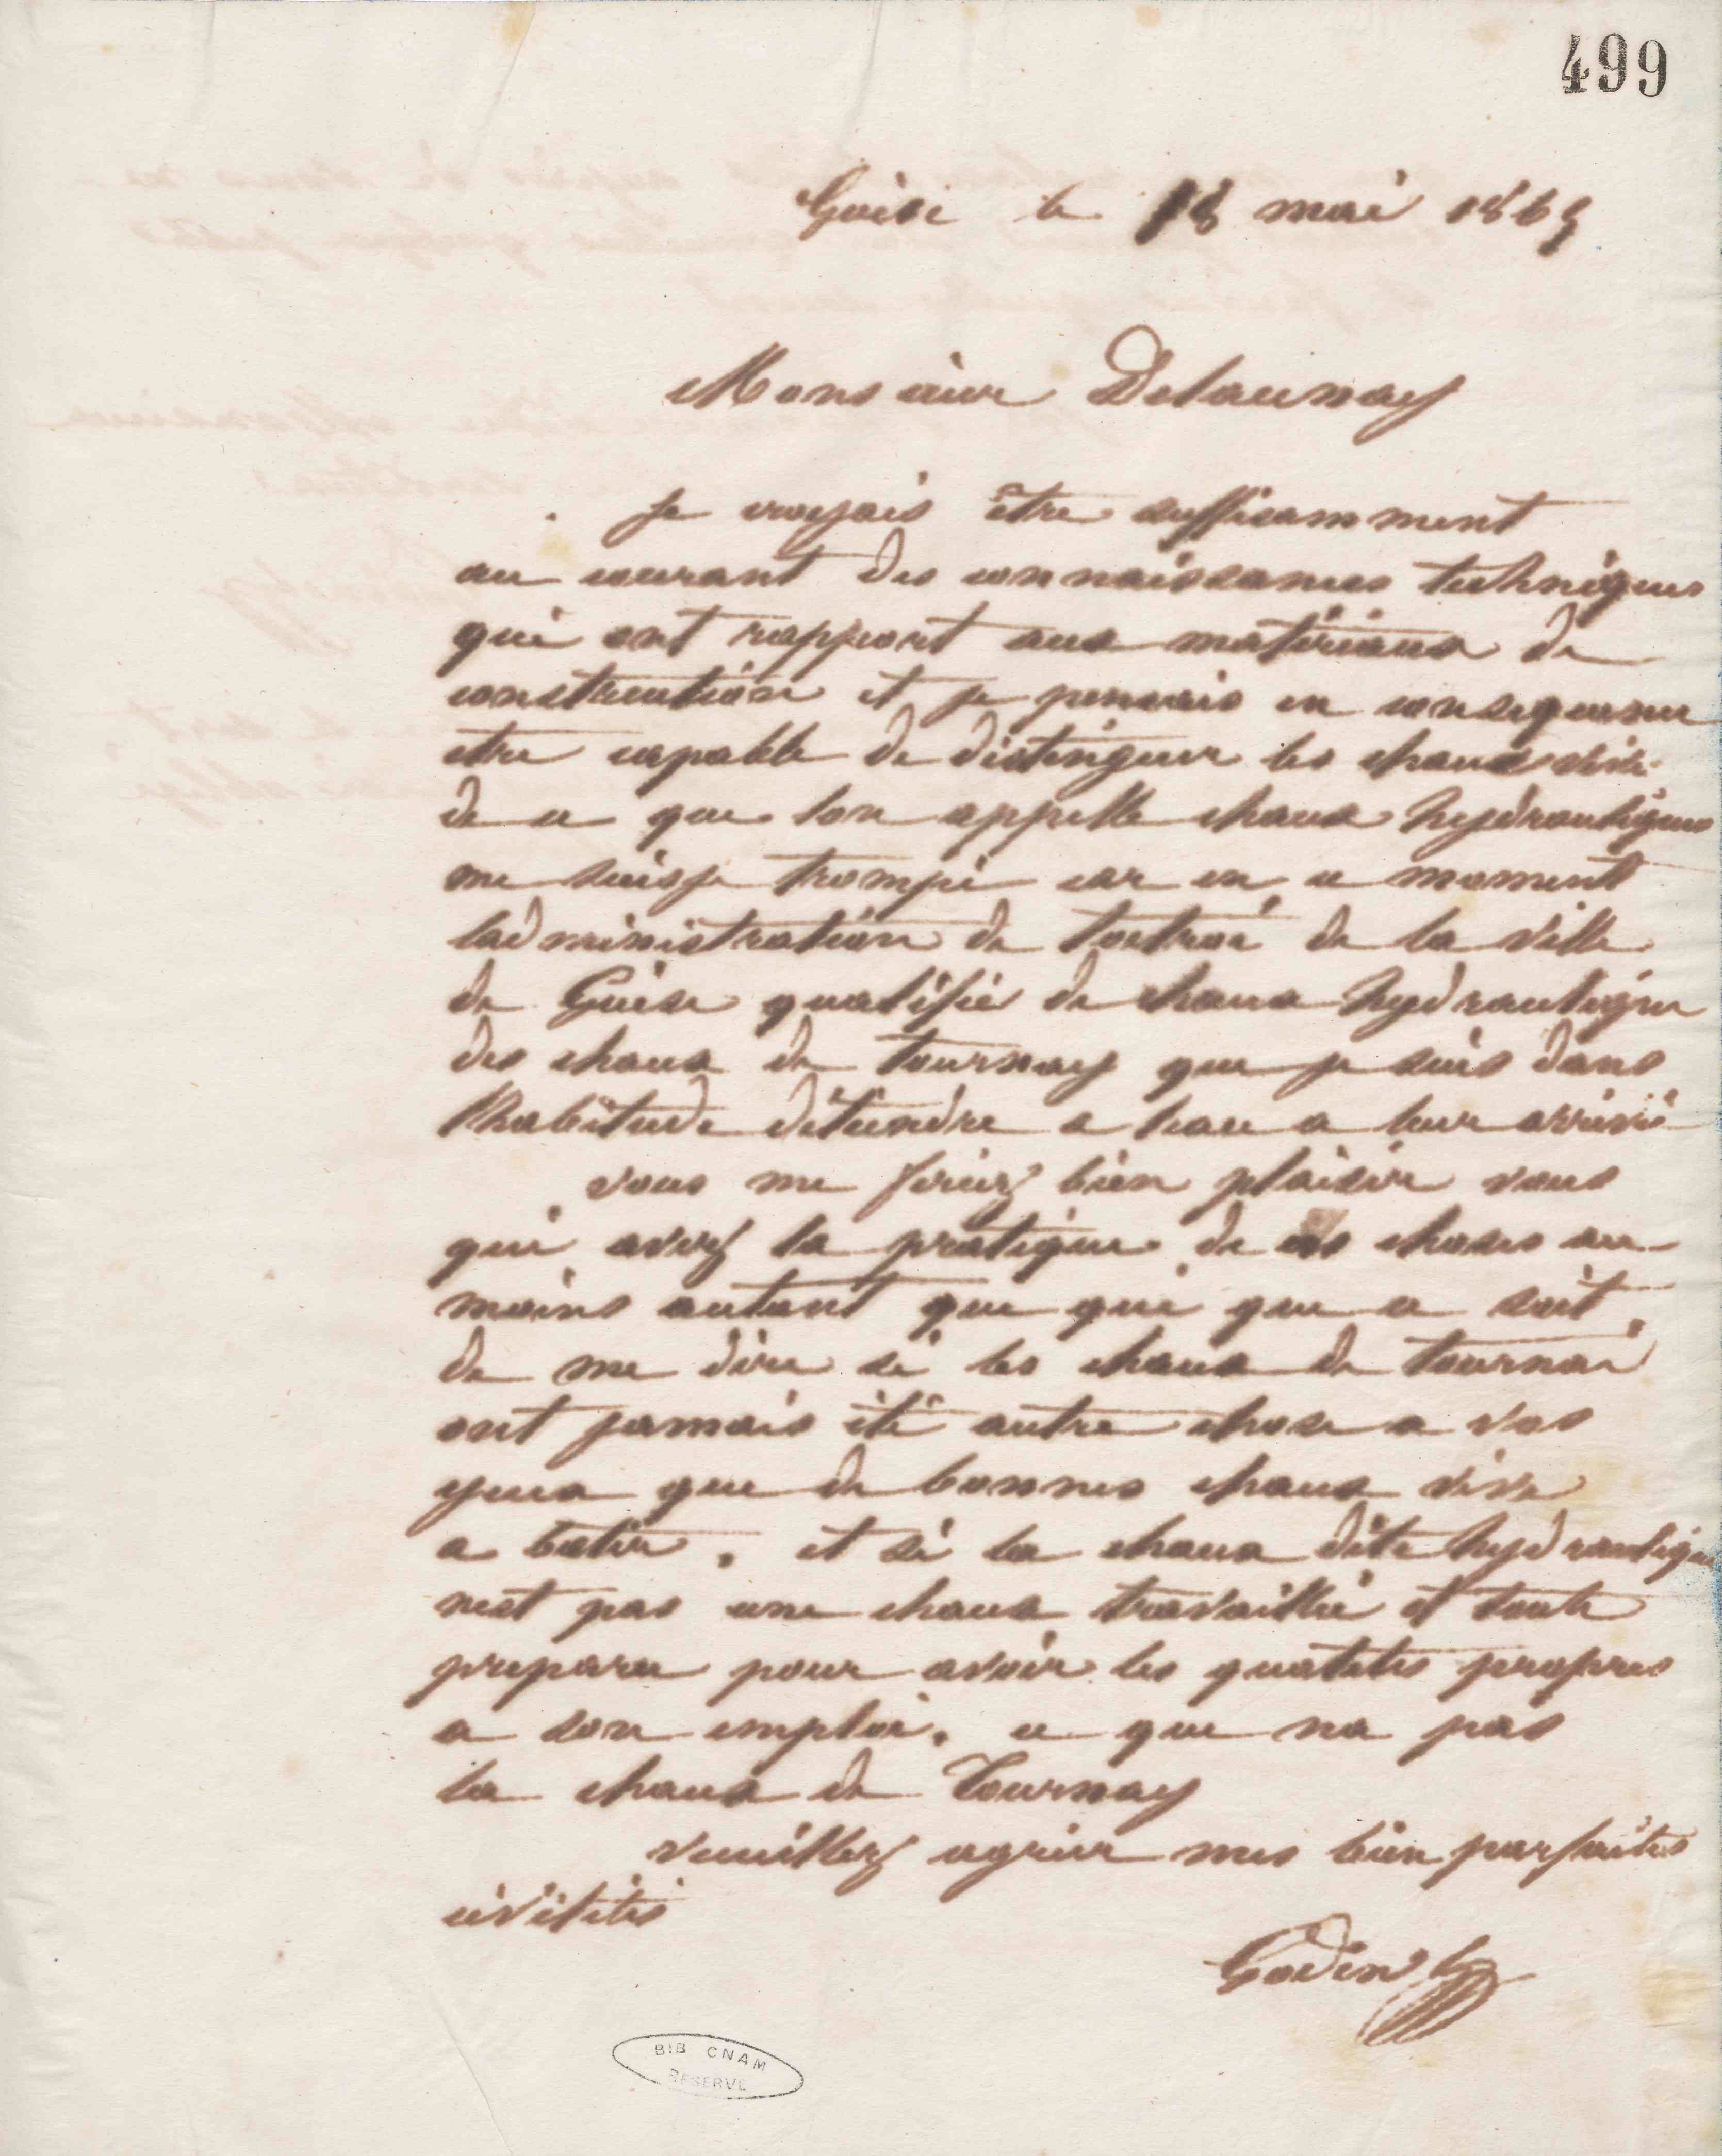 499
Guise le 18 mai 1865
Monsieur Delaunay
Je croyais être suffisamment
au courant des connaissances techniques
qui ont rapport aux matériaux de
construction et je pensais en consequence
etre capable de distinguer les chaux vive
de ce que lon appelle chaux hydrauliques
me suisje trompé car en ce moment
ladministration de loctroi de la ville
de Guise qualifié de chaux hydraulique
des chaux de tournay que je suis dans
lhabitude déteindre a leau a leur arrivé
vous me feriez bien plaisir vous
qui avez la pratique de ces choses au
moins autant que qui que ce soit,
de me dire si les chaux de tournai
ont jamais été autre chose a vos
yeux que de bonnes chaux vive
a batir. et si la chaux dite hydraulique
nest pas une chaux travaillée et toute
preparee pour avoir les qualites propres
a son emploi. ce que na pas
la chaux de Tournay
veuillez agréer mes bien parfaites
civilités
Godin
BIB CNAM
RESERVE